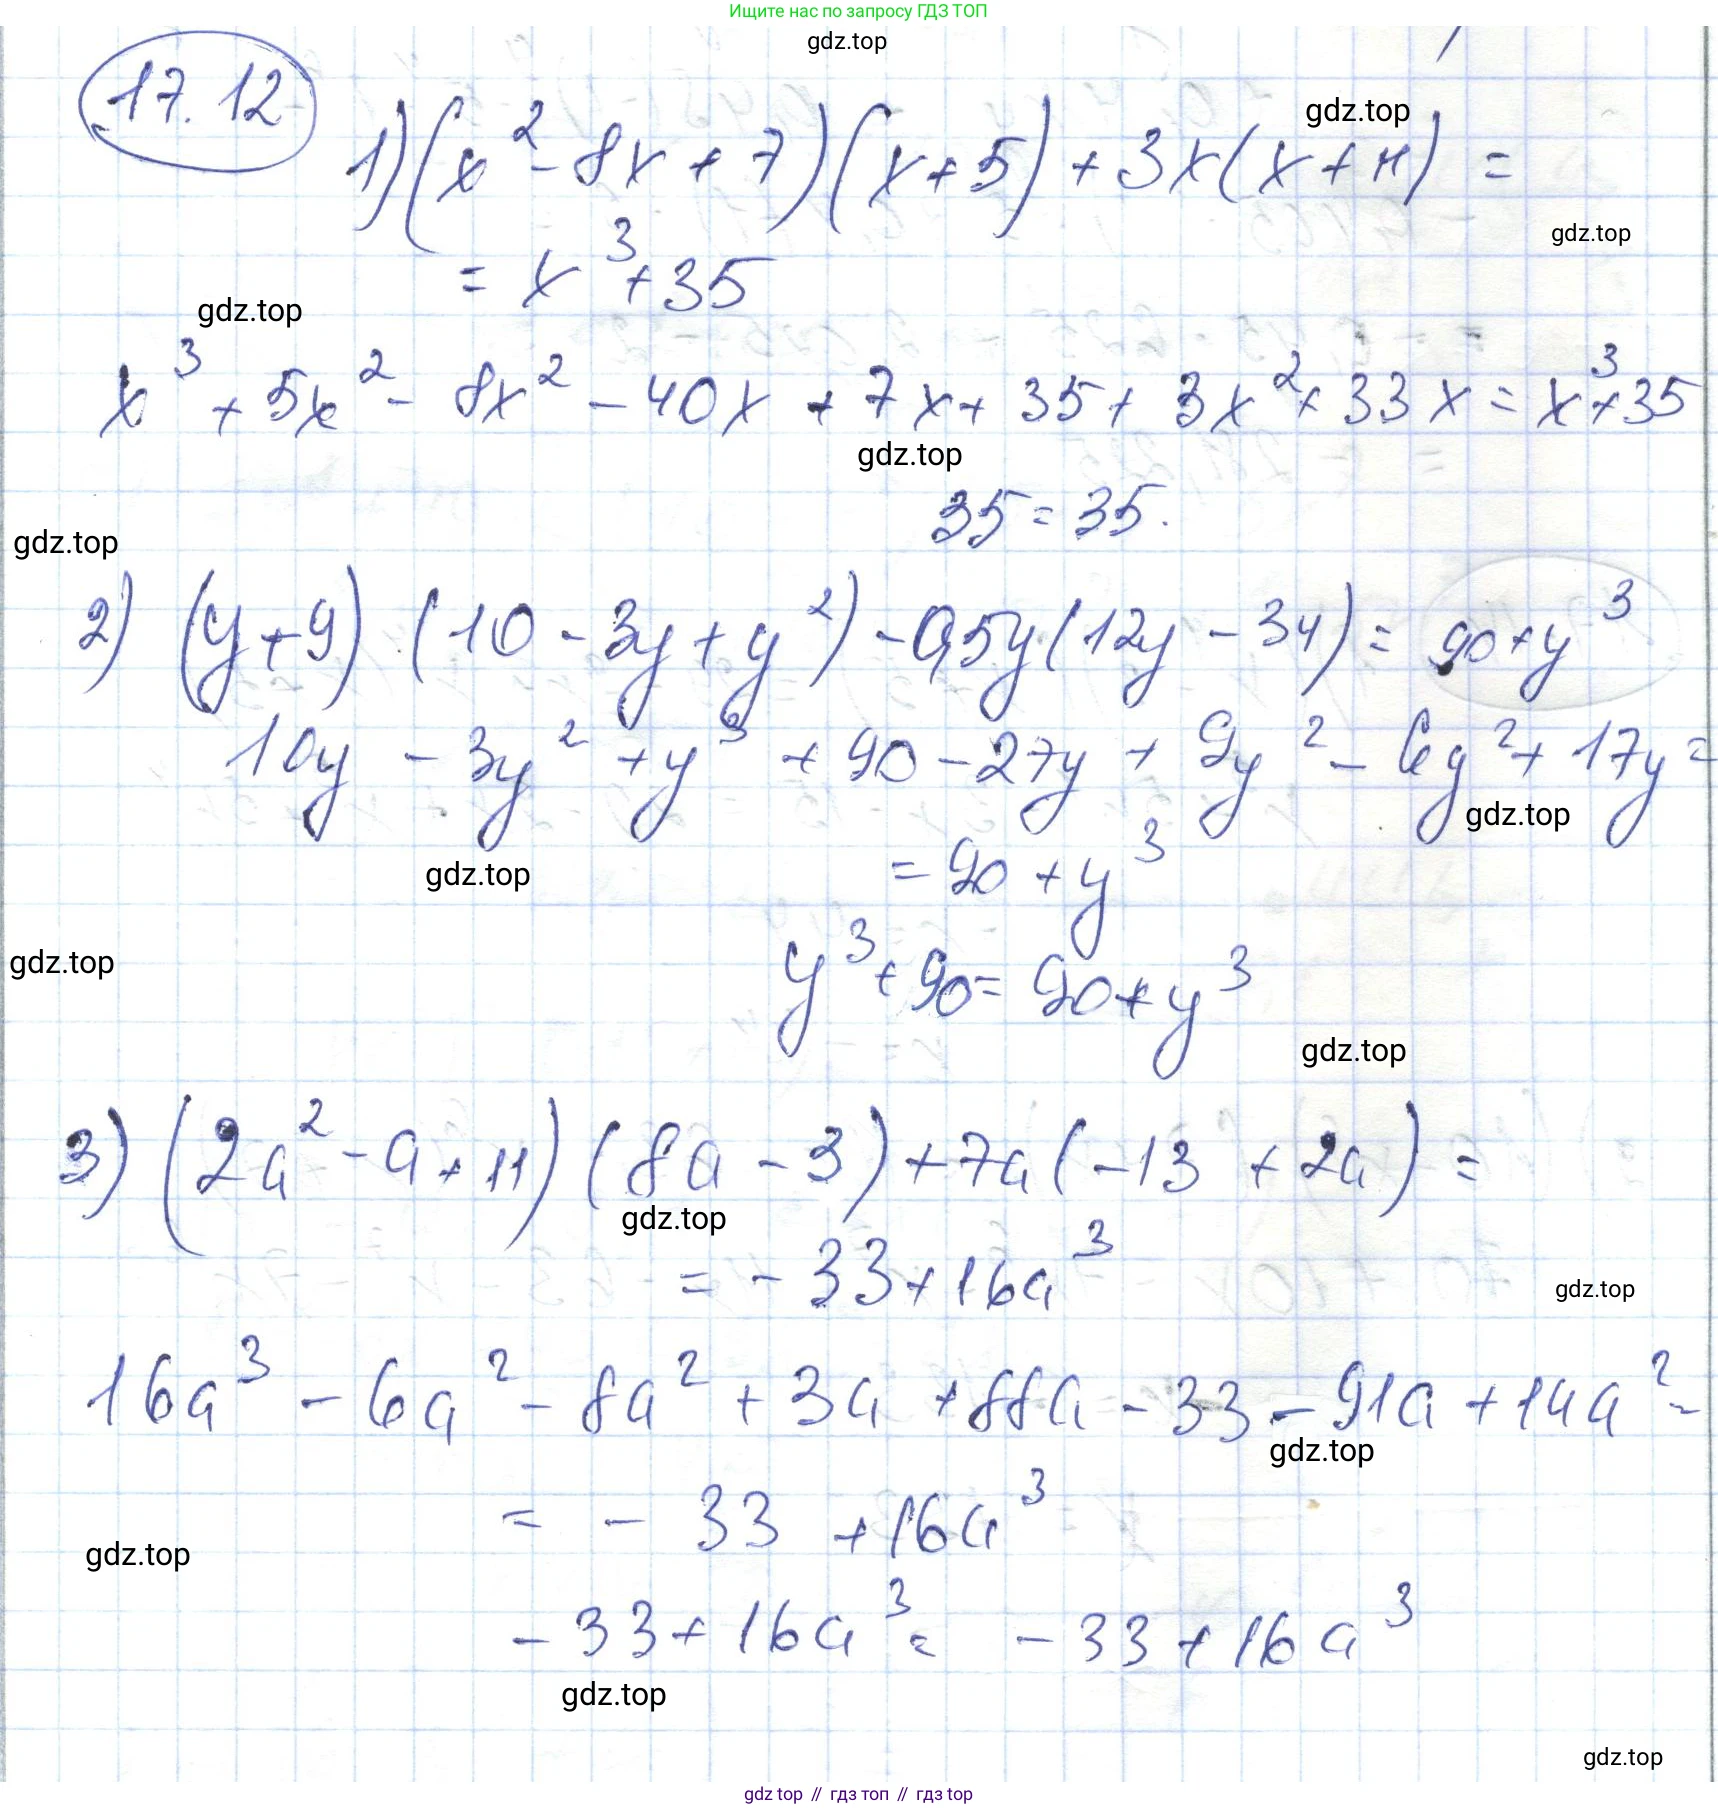 Ищите нас по запросу ГДЗ ТОП
gdz.top
17.12
gdz.top
1) (x² - 8x + 7)(x + 5) + 3x(x + 11) =
gdz.top
= x³ + 35
gdz.top
x³ + 5x² - 8x² - 40x + 7x + 35 + 3x² + 33x = x³ + 35
gdz.top
35 = 35.
gdz.top
2) (y + 9) · (10 - 3y + y²) - 0,5y(12y - 34) = 90 + y³
10y - 3y² + y³ + 90 - 27y + 9y² - 6y² + 17y =
gdz.top
= 90 + y³
gdz.top
y³ + 90 = 90 + y³
gdz.top
gdz.top
3) (2a² - a + 11)(8a - 3) + 7a(-13 + 2a) =
gdz.top
= - 33 + 16a³
gdz.top
16a³ - 6a² - 8a² + 3a + 88a - 33 - 91a + 14a² =
gdz.top
= - 33 + 16a³
gdz.top
- 33 + 16a³ = - 33 + 16a³
gdz.top
gdz.top
gdz top // гдз топ // гдз top